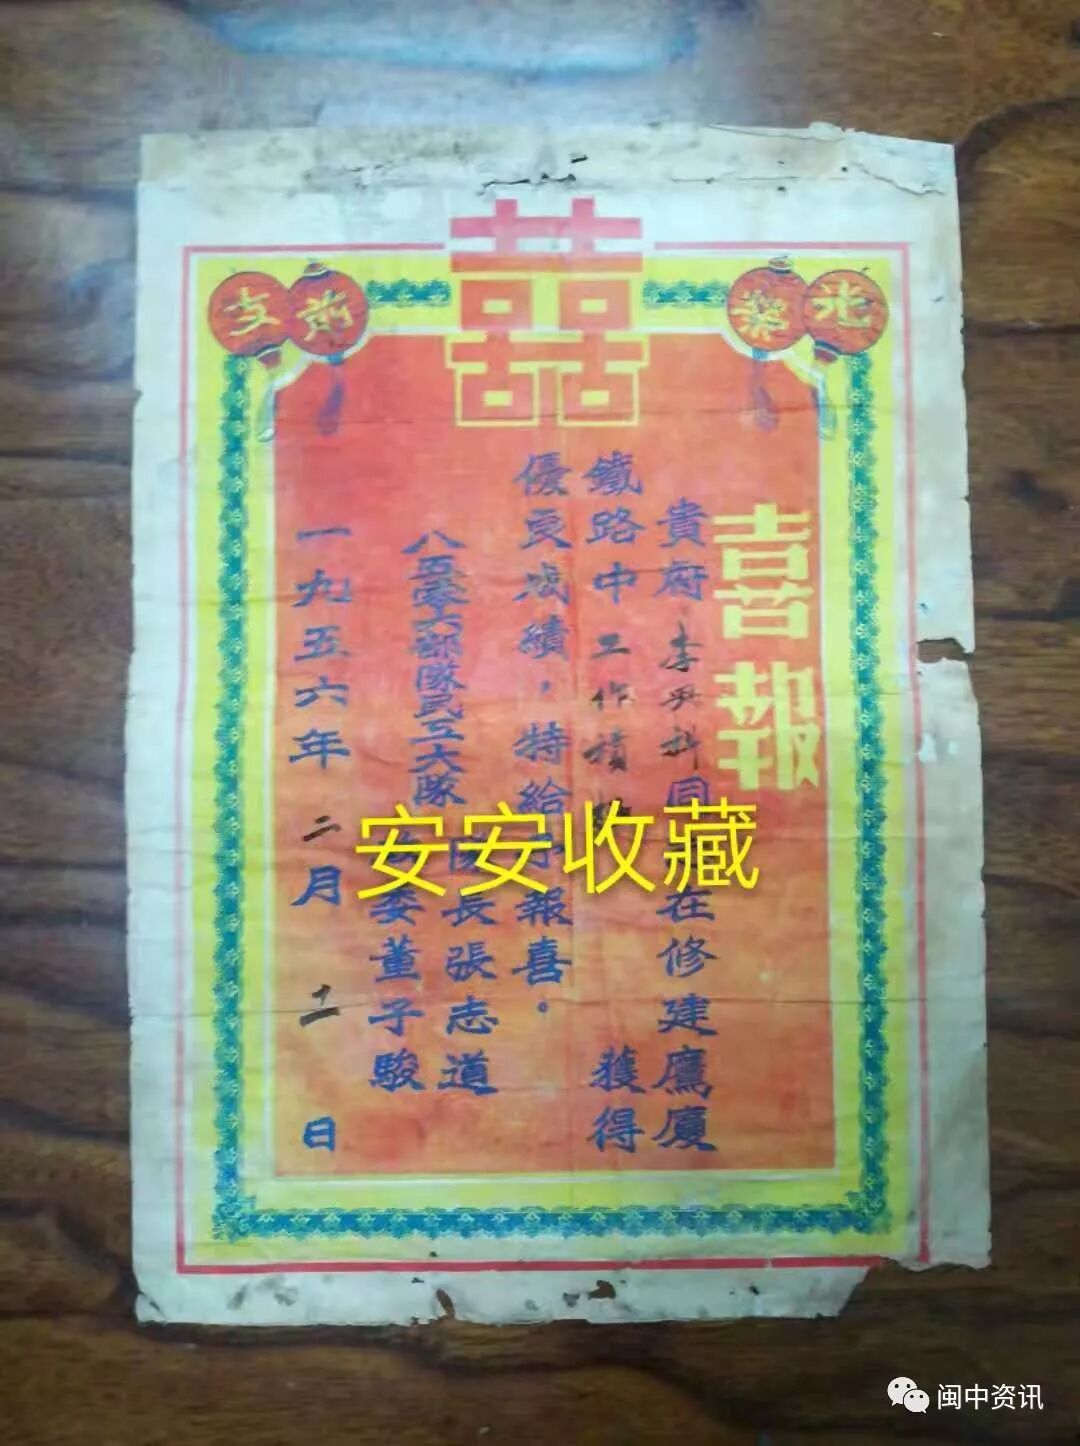 光榮前支
囍
喜報
貴府李興科同在修建鷹廈
鐵路中工作積 獲得
優良成績，特給 報喜。
八五零六部隊民工大隊
隊長張志道
委董子駿
一九五六年二月十一日
安安收藏
闽中资讯